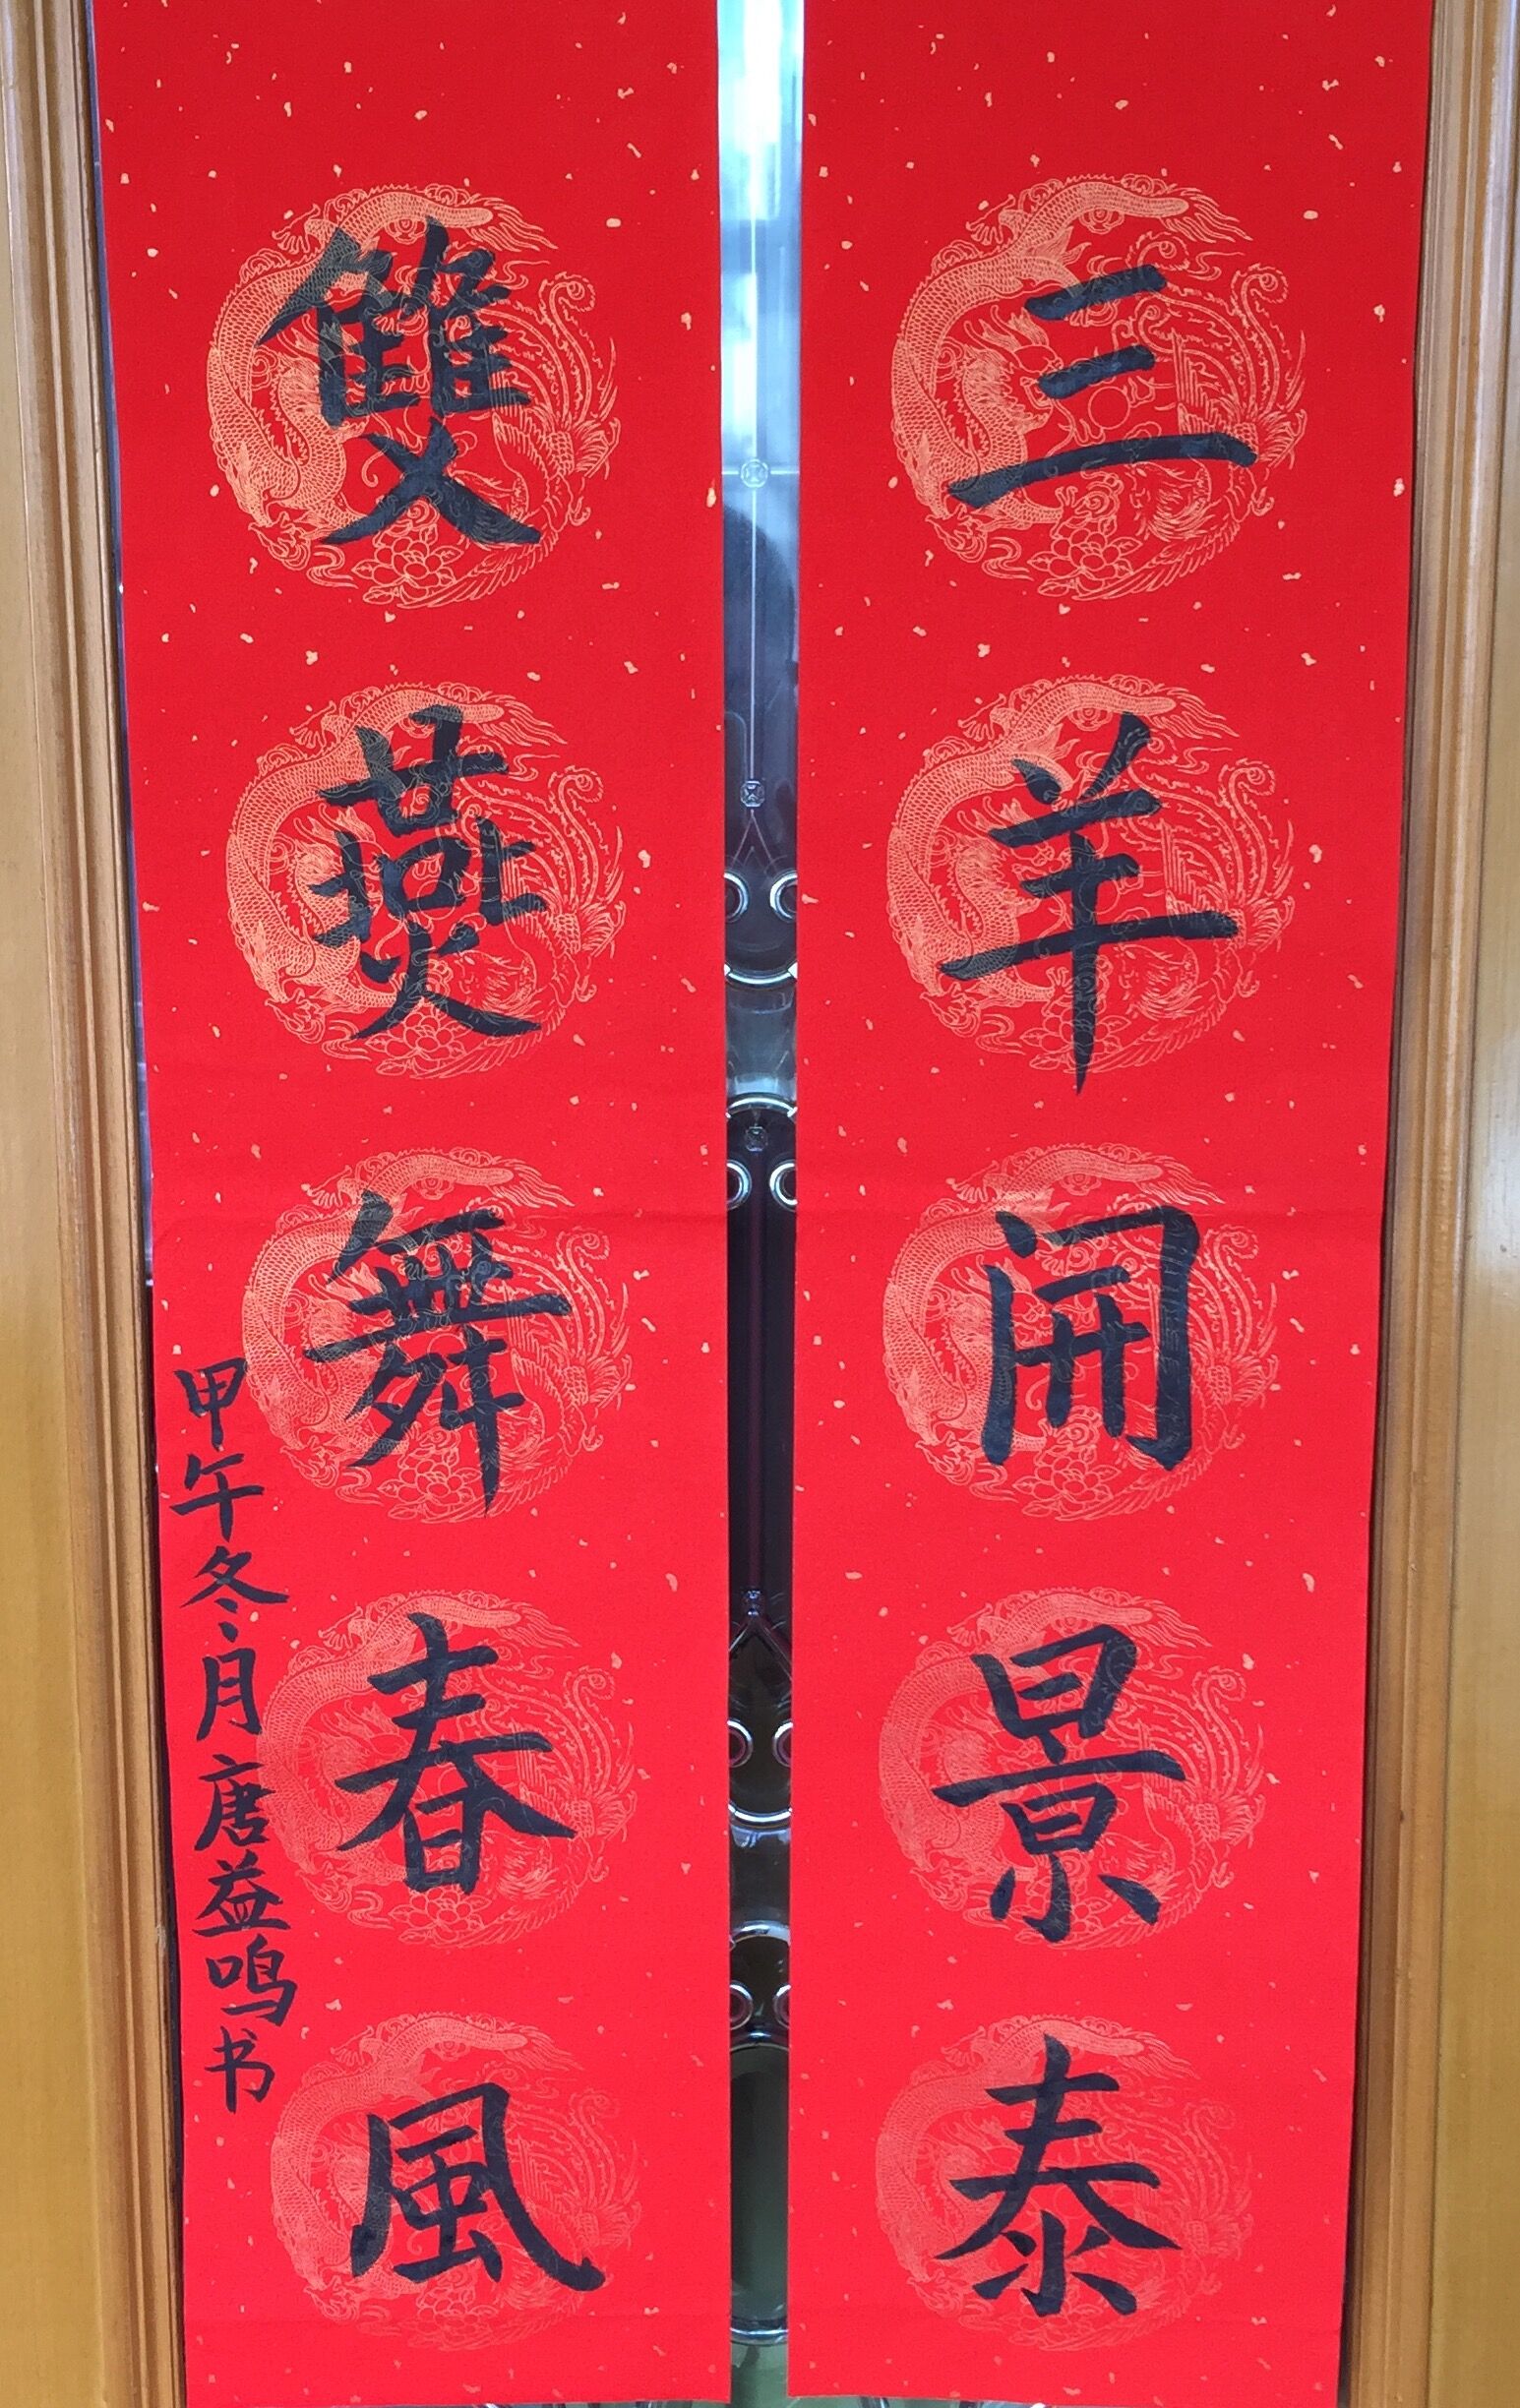 三羊開景泰
雙燕舞春風
甲午冬月唐益鸣书